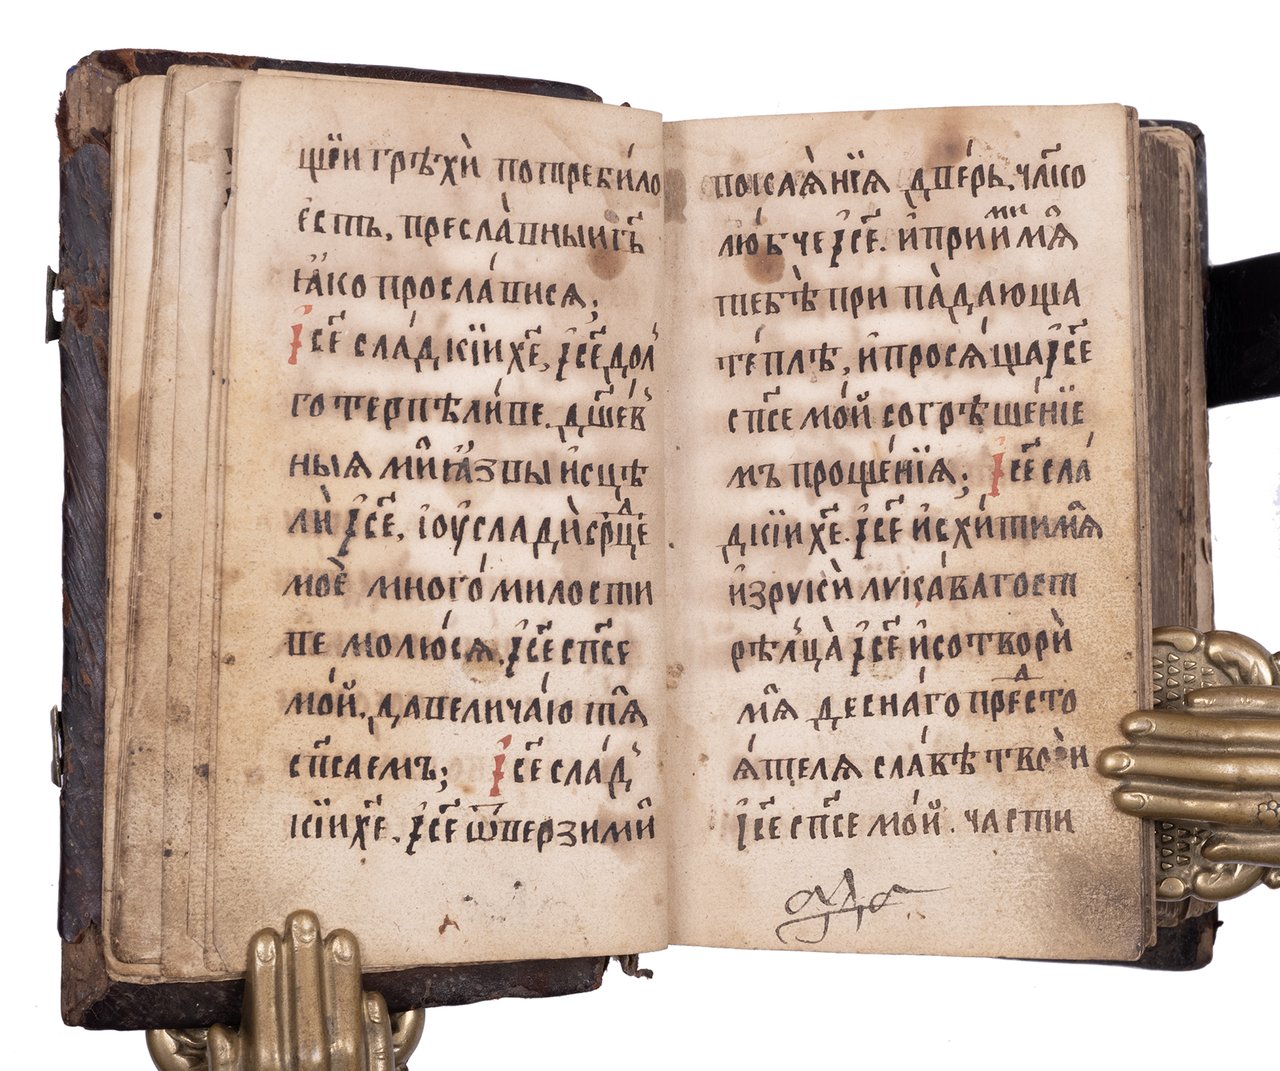 щїи грѣхѝ потреби́ло
е҆сть, пресла́вныи бг҃ъ
ꙗ҆́ко просла́висѧ;
І҆с҃е сла́дкїи хс҃е, і҆с҃е дол
готерпѣли́ве. дш҃ев
ныѧ мѝ ꙗ҆́звы и҆сцѣ
лѝ і҆с҃е, і҆оу҆сладѝ срⷣце
моѐ многомилости
ве молю́сѧ. і҆с҃е сп҃се
мо́й, да велича́ю тѧ̀
сп҃саемъ; І҆с҃е сла́д
кїи хс҃е. і҆с҃е ѿверзи мѝ
покаѧ́нїѧ двє́рь, чл҃ко
лю́бче і҆с҃е. и҆ прїими мѧ̀
тебѣ̀ припа́дающа
те́плѣ, и҆ просѧ́ща і҆с҃е
сп҃се мо́й согрѣше́нїе
мъ проще́нїѧ; І҆с҃е сла́
дкїи хс҃е. і҆с҃е и҆схи́ти мѧ̀
и҆з рукѝ лука́ваго ст
рѣлца̀ і҆с҃е и҆ сотворѝ
мѧ̀ десна́го преⷣсто
ѧ́телѧ сла́вѣ твое́и
і҆с҃е сп҃се мо́й. части